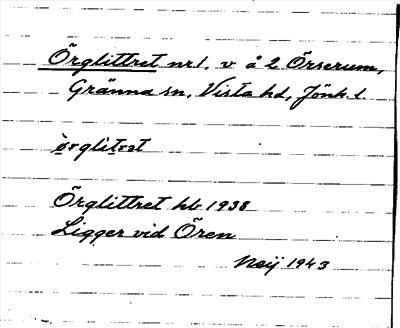 Örglittret nr 1, v å 2 Örserum,
Gränna sn, Vista hd, Jönk. l.
Örglittret hb 1938
Ligger vid Ören
Neij 1943